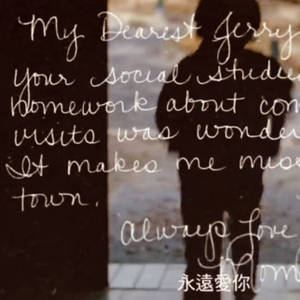 My Dearest Jerry
your social studie
homework about con
visits was wonder
It makes me miss
town.
Always Love
Mom
永遠愛你